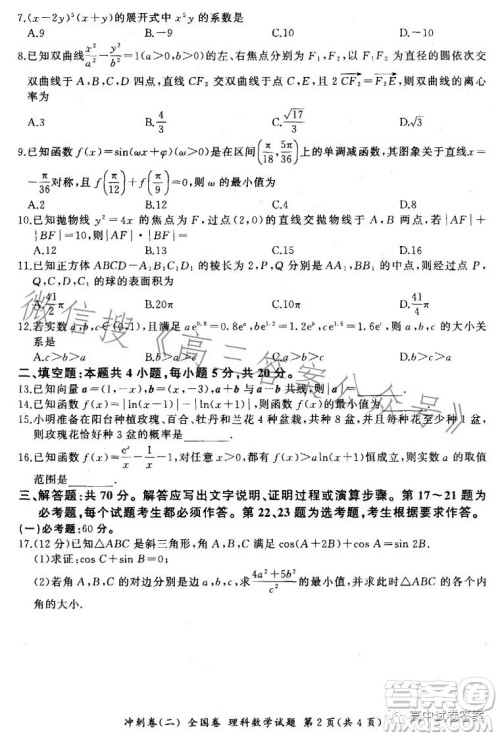 7.(x-2y)⁵(x+y)的展开式中 x⁵y 的系数是
A.9 B.-9 C.10 D.-10
8.已知双曲线x²/a²-y²/b²=1(a>0,b>0)的左、右焦点分别为 F₁,F₂,以 F₁F₂ 为直径的圆依次交
双曲线于 A,B,C,D 四点,直线 CF₂ 交双曲线于点 E,且 2CF₂=F₂E,则双曲线的离心
率为
A.3 B.4/3 C.√17/3 D.√3
9.已知函数 f(x)=sin(ωx+φ)是在区间(π/18,5π/36)上的单调减函数,其图象关于直线 x=-
π/36对称,且 f(π/12)+f(π/9)=0,则 ω 的最小值为
A.2 B.12 C.4 D.8
10.已知抛物线 y²=4x 的焦点为 F,过点(2,0)的直线交抛物线于 A,B 两点,若|AF|+
|BF|=10,则|AF|·|BF|=
A.12 B.13 C.15 D.16
11.已知正方体 ABCD-A₁B₁C₁D₁ 的棱长为 2,P,Q 分别是 AA₁,BB₁ 的中点,则经过点 P,
Q,C₁,D₁ 的球的表面积为
A.41/2π B.20π C.10π D.41/4π
12.若实数 a,b,c∈(0,1),且满足 aeᵒ·⁸=0.8eᵃ,be¹·²=1.2eᵇ,ce¹·⁶=1.6eᶜ,则 a,b,c 的大小关
系是
A.c>b>a B.b>a>c C.a>c>b D.a>b>c
二、填空题:本题共 4 小题,每小题 5 分,共 20 分。
13.已知向量 a=(1,-x),b=(x,2),a+b 与 a-b 共线,则|a|=
14.已知函数 f(x)=|ln(x-1)|-|ln(x+1)|,则 f(x)的零点为
15.小明准备在阳台种植玫瑰、百合、牡丹和兰花 4 种花卉,共 8 盆,其中每种花至少种 1 盆,
则玫瑰花恰好种 3 盆的概率是
16.已知函数 f(x)=eˣ/x-a(lnx+1/x)在区间(1,2)上有最小值,则实数 a 的取值
范围是
三、解答题:共 70 分。解答应写出文字说明、证明过程或演算步骤。第 17~21 题为
必考题,每个试题考生都必须作答。第 22、23 题为选考题,考生根据要求作答。
(一)必考题:60分。
17.(12 分)已知△ABC 是斜三角形,且满足 cos(A+2B)+cos A=sin 2B.
(1)求证:cos C=sin B;
(2)若角 A,B,C 的对边分别是 a,b,c,求4a²+5b²/c²的最小值,并求此时△ABC 的各个内
角的大小.
微信搜《高三答案公众号》
冲刺卷(二) 全国卷 理科数学试题 第 2 页(共 4 页)
高中试卷答案